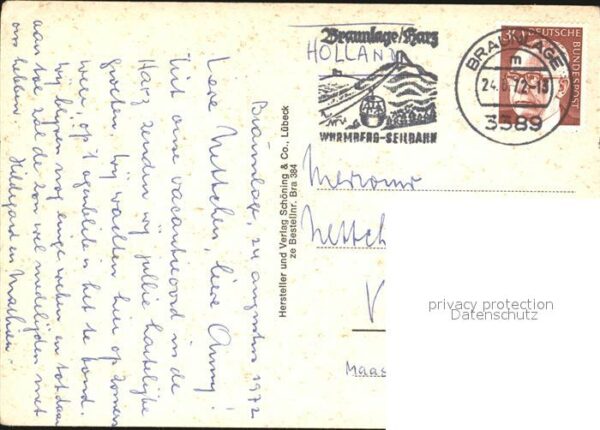 Braunlage, 24 augustus 1972
Lieve Nettchen, lieve Anny!
Uit onze vacantieoord in de
Harz zenden wij jullie hartelijke
groeten. Wij wachten hier op zomers
weer, op 't ogenblik is het te koud.
Wij blijven nog enige weken en tot dan
aan toe zal de zon wel medelijden met
ons hebben. Hildegard en
Hersteller und Verlag Schöning & Co., Lübeck
ze Bestellnr. Bra 384
Braunlage/Harz
HOLLAND
WURMBERG-SEILBAHN
BRAUNLAGE
m
24.8.72-13
3389
DEUTSCHE
BUNDESPOST
Mevrouw
Nettch
V
Maas
privacy protection
Datenschutz